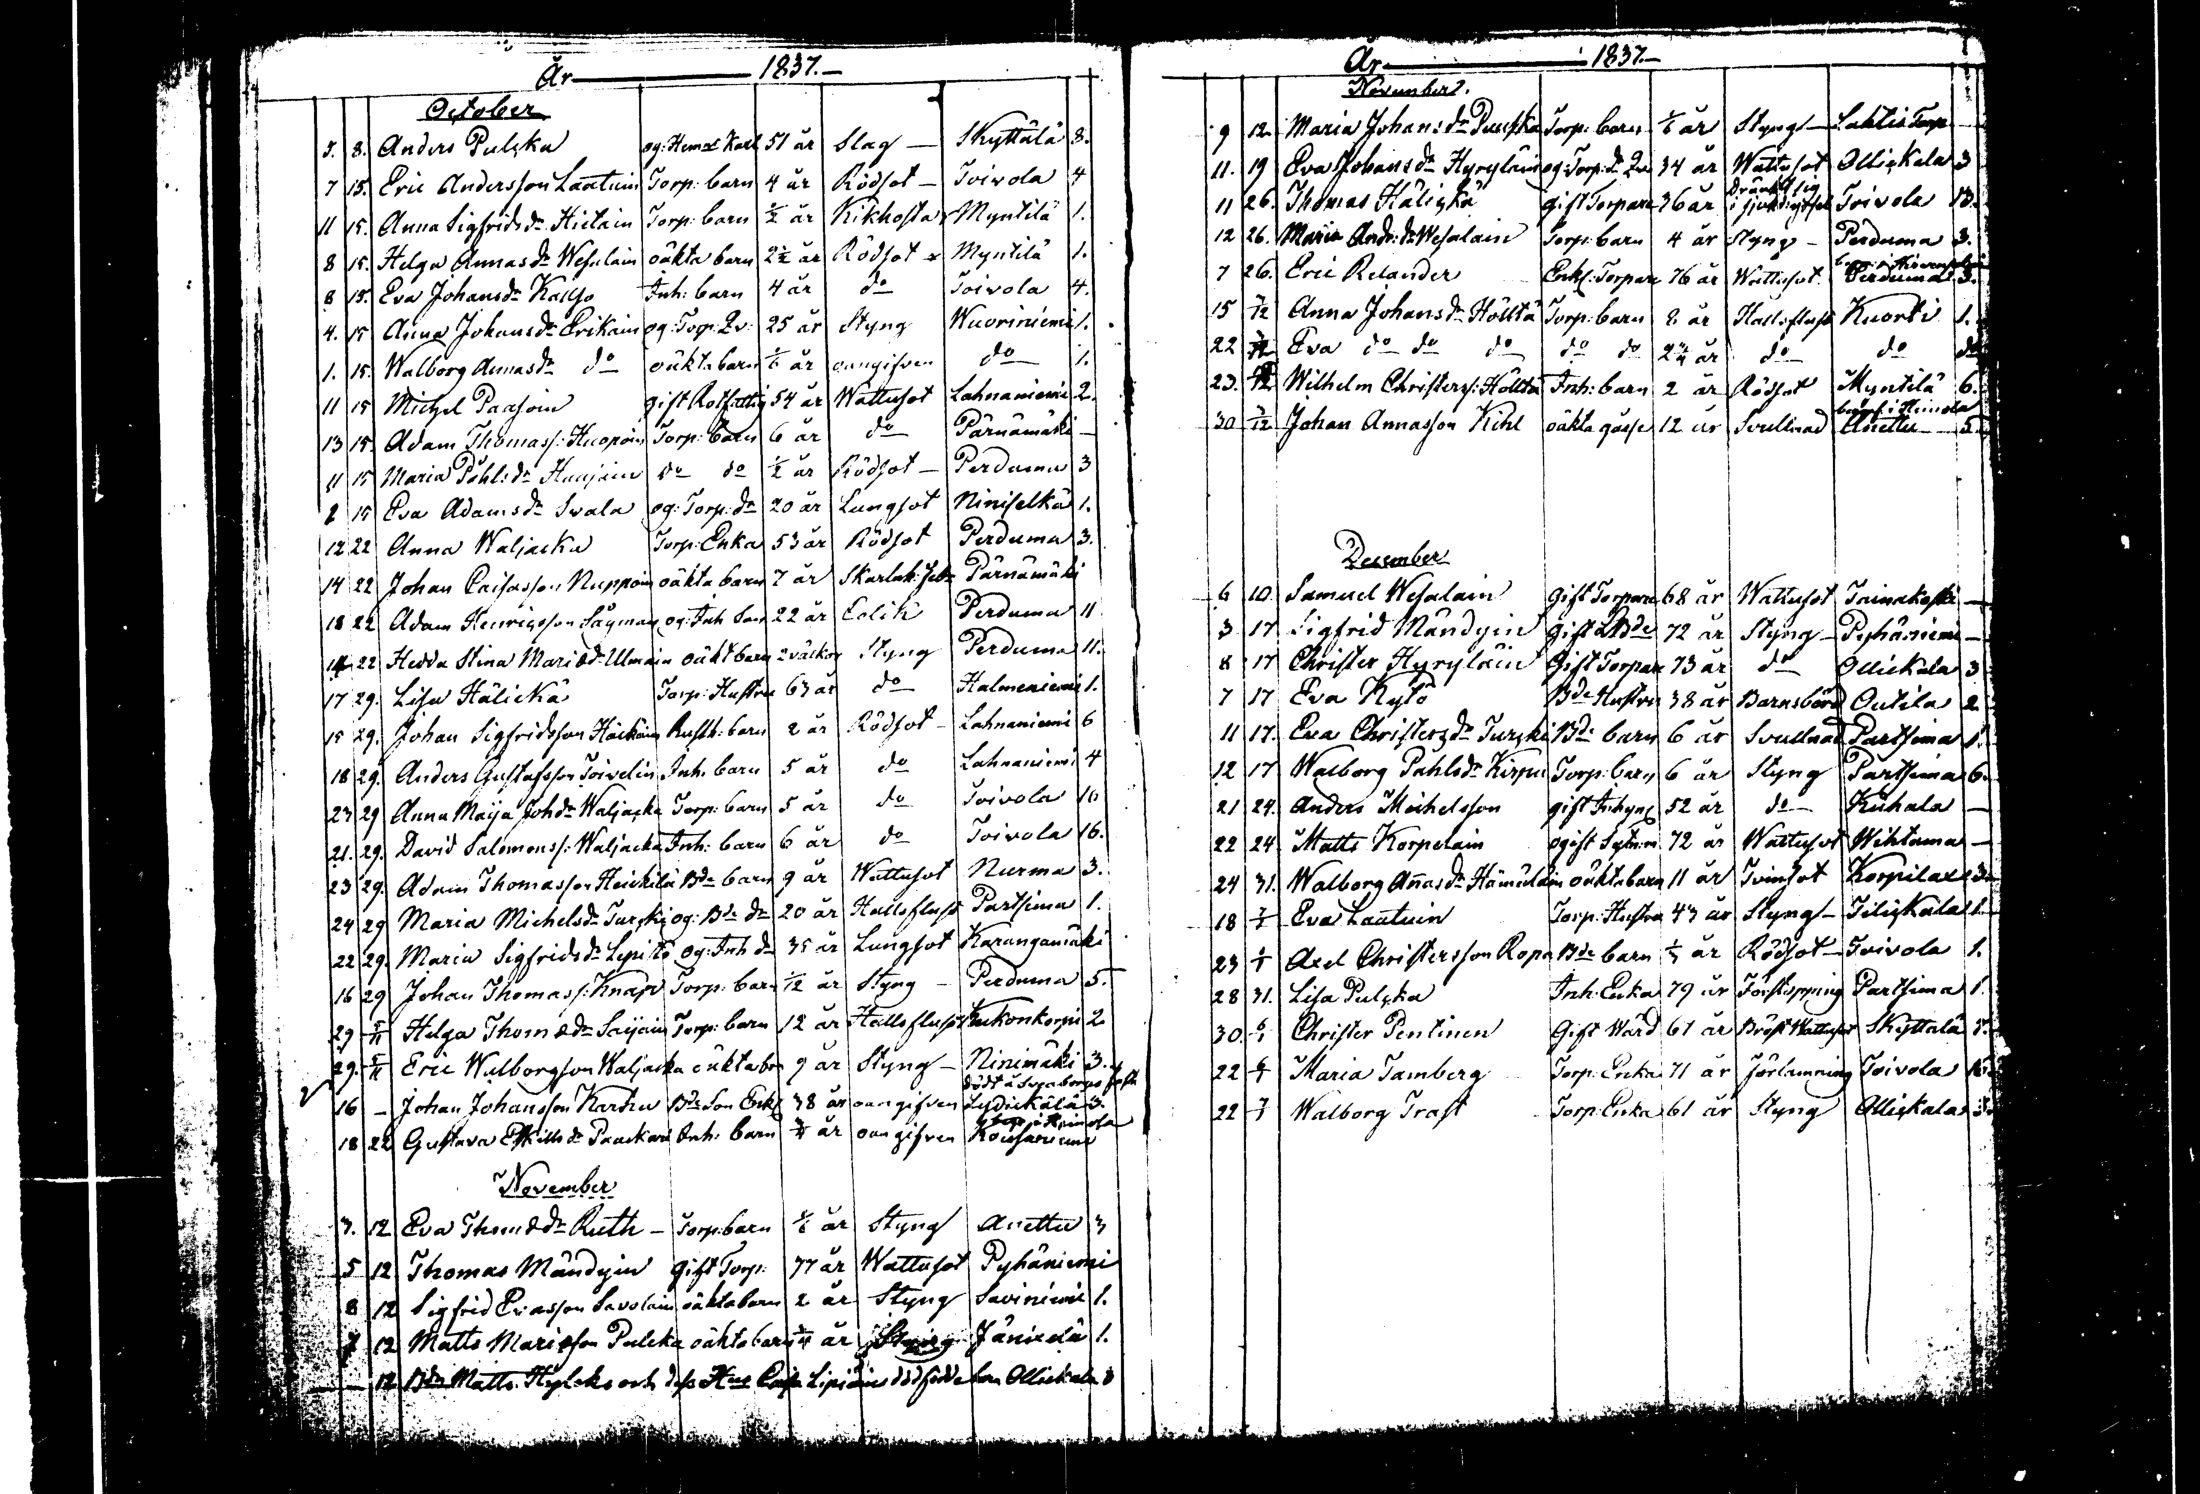 År 1837.
October
7. 8. Anders Pulcka og: Hemm Karl 51 år Slag Skyttälä 8.
7 15. Eric Andersson Laatuin Torp: barn 4 år Rödsot Toivola 4
11 15. Anna Sigfridsdr Hietain Torp: barn ½ år Kikhosta Myntilä 1.
8 15. Helga Annasdr Wesalain oäkta barn 2½ år Rödsot Myntilä 1.
8 15. Eva Johansdr Kalljo Inh: barn 4 år do Toivola 4.
4. 15 Anna Johansdr Erikain og: Torp: Qv: 25 år Styng Wuoriniemi 1.
1. 15. Walborg Annasdr do oäkta barn 1/6 år oangifven do 1.
11 15 Michel Paasoin gift Rotfattig 54 år Wattusot Lahnaniemi 2.
13 15. Adam Thomass: Kuopoin Torp: barn 6 år do Pärnämäki
11 15 Maria Påhlsdr do do ½ år Rödsot Perduma 3
2 15 Eva Adamsdr Svala og: Torp: dr 20 år Lungsot Niniselkä 1.
12 22 Anna Waljacka Torp: Enka 53 år Rödsot Perduma 3.
14 22 Johan Caisasson Nuppoin oäkta barn 7 år Skarlak: feb: Pärnämäki
18 22 Adam Henricsson Sågman og: Inh Son 22 år Colik Perduma 11
14 22 Hedda Stina Mariædr Ulmain oäkt barn 2 väckor Styng Perduma 11.
17 29. Lisa Hälickä Torp: Hustru 63 år do Halmeniemi 1.
15 29. Johan Sigfridsson Rusth: barn 2 år Rödsot Lahnaniemi 6
18 29. Anders Gustafsson Toivelin Inh: barn 5 år do Lahnaniemi 4
23 29 Anna Maija Johdr Waljacka Torp: barn 5 år do Toivola 16
21. 29. David Salomons: Waljacka Inh: barn 6 år do Toivola 16.
23 29. Adam Thomasson Heickilä Bde barn 9 år Wattusot Nurma 3.
24 29 Maria Michelsdr Turcki og: Bde dr 20 år Hallsflusst Partsima 1.
22 29. Maria Sigfridsdr Lepistö og: Inh dr 35 år Lungsot Karangamäki
16 29 Johan Thomass: Knap Torp: barn 1/12 år Styng Perduma 5.
29 5/11 Helga Thomædr Saijain Torp: barn 12 år Hallsflusst Kukonkorpi 2
29. 5/11 Eric Walborgson Waljacka oäkta bn 9 år Styng Ninimäki 3.
död å Sveaborgs fäst
16 — Johan Johansson Karhu Bde Son 38 år oangifven Lydickälä 3.
Heinola
18 22 Gustava Eskilsdr Paackari Inh: barn ¾ år oangifven
November
3. 12 Eva Thomædr Ruth Torp: barn 1/6 år Styng Anettu 3
5 12 Thomas Mändyin gift Torp: 77 år Wattusot Pyhäniemi
8 12 Sigfrid Evasson Savolain oäkta barn 2 år Styng Saviniemi 1.
7 12 Matts Mariæson Pulcka oäkta barn år Styng Jänicelä 1.
— 12 Bdn Matts och dess Hus Caisa dödfödde barn Ollickala 3
År 1837.
November.
9 12. Maria Johansdr Puupka Torp: barn 1/6 år Styng Lahtis Torp
11. 19 Eva Johansdr Hyryläin og: Torp: dr 34 år Wattusot Ollickala 3
dränkt sig
11 26. Thomas Hälickä gift Torpare 36 år i Toivola 13.
12 26. Maria Andr: dr Wesalain Torp: barn 4 år Styng Perduma 3.
7 26. Eric Relander Enkl: Torpare 76 år Wattusot Perduma 3.
15 7/12 Anna Johansdr Hölttä Torp: barn 8 år Hallsflusst Kuorti 1.
22 Eva do do do do do 2¾ år do do do
23. Wilhelm Christers: Hölttä Inh: barn 2 år Rödsot Myntilä 6.
begraf: i Heinola
30 7/12 Johan Annasson Kihl oäkta gosse 12 år Svullnad Anettu 5
December
6 10 Samuel Wesalain gift Torpare 68 år Wattusot Tainakoski
3 17 Sigfrid Mändyin gift Bde 72 år Styng Pyhäniemi
8 17 Christer Hyryläin Gift Torpare 73 år do Ollickala 3
7 17 Eva Kytö Bde Hustru 38 år Barnsbörd Outila 2
11 17. Eva Christersdr Turcki Bde barn 6 år Svullnad Partsima 1.
12 17 Walborg Pahlsdr Kirpu Torp: barn 6 år Styng Partsima 6.
21 24. Anders Michelsson gift Inhyses 52 år do Kühala
22 24 Matts Korpelain ogift 72 år Wattusot Wihtama
24 31. Walborg Añasdr Hämäläin oäkta barn 11 år Tvinsot Korpilax 3
18 7/1 Eva Laatuin Torp: Hustru 43 år Styng Tilickala 1.
23 Axel Christersson Ropa Bde barn år Rödsot Toivola 1.
28 31. Lisa Pulcka Inh: Enka 79 år Förstoppning Partsima 1.
30. 6/1 Christer Pentinen Gift Wärd 61 år Bröst Wattusot Skyttälä 5.
22 6/1 Maria Tamberg Torp: Enka 71 år Förlamning Toivola 16
22 7/1 Walborg Trast Torp: Enka 61 år Styng Ollickala 3